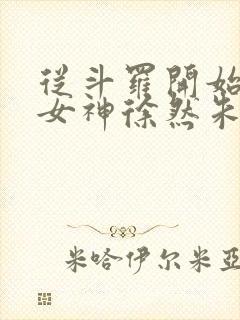 從斗羅開始
女神徐然朱
米哈伊尔米亞